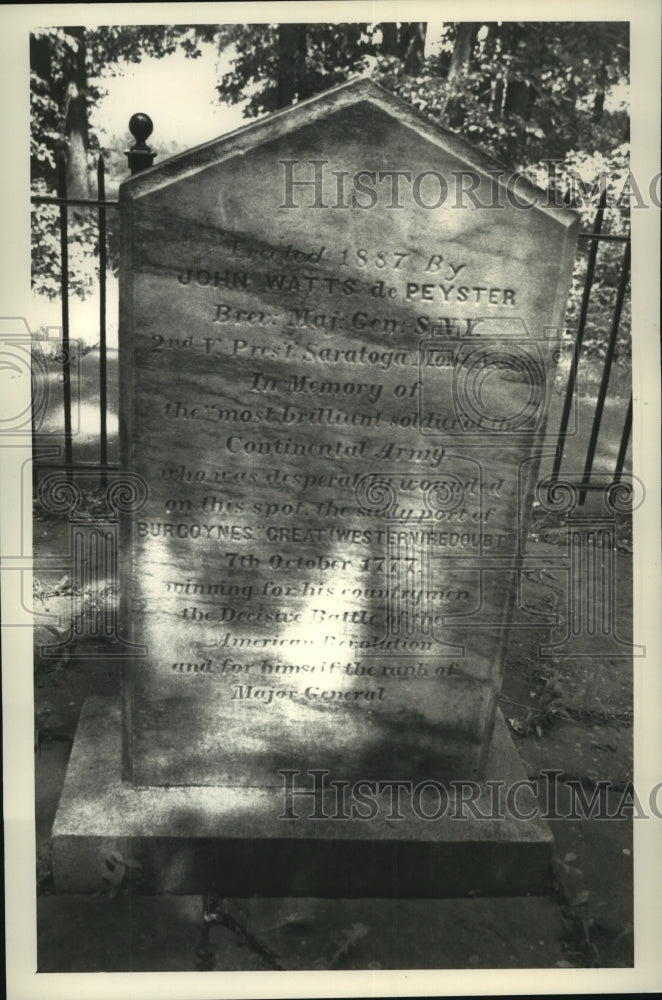 HISTORIC IMAGES
Erected 1887 By
JOHN WATTS de PEYSTER
Brev: Maj: Gen: S.N.Y.
2nd V. Prest Saratoga Mont
In Memory of
the "most brilliant soldier" of the
Continental Army
who was desperately wounded
on this spot, the sally port of
BURGOYNES "GREAT (WESTERN) REDOUBT"
7th October 1777
winning for his countrymen
the Decisive Battle of the
American Revolution
and for himself the rank of
Major General
HISTORIC IMAGES